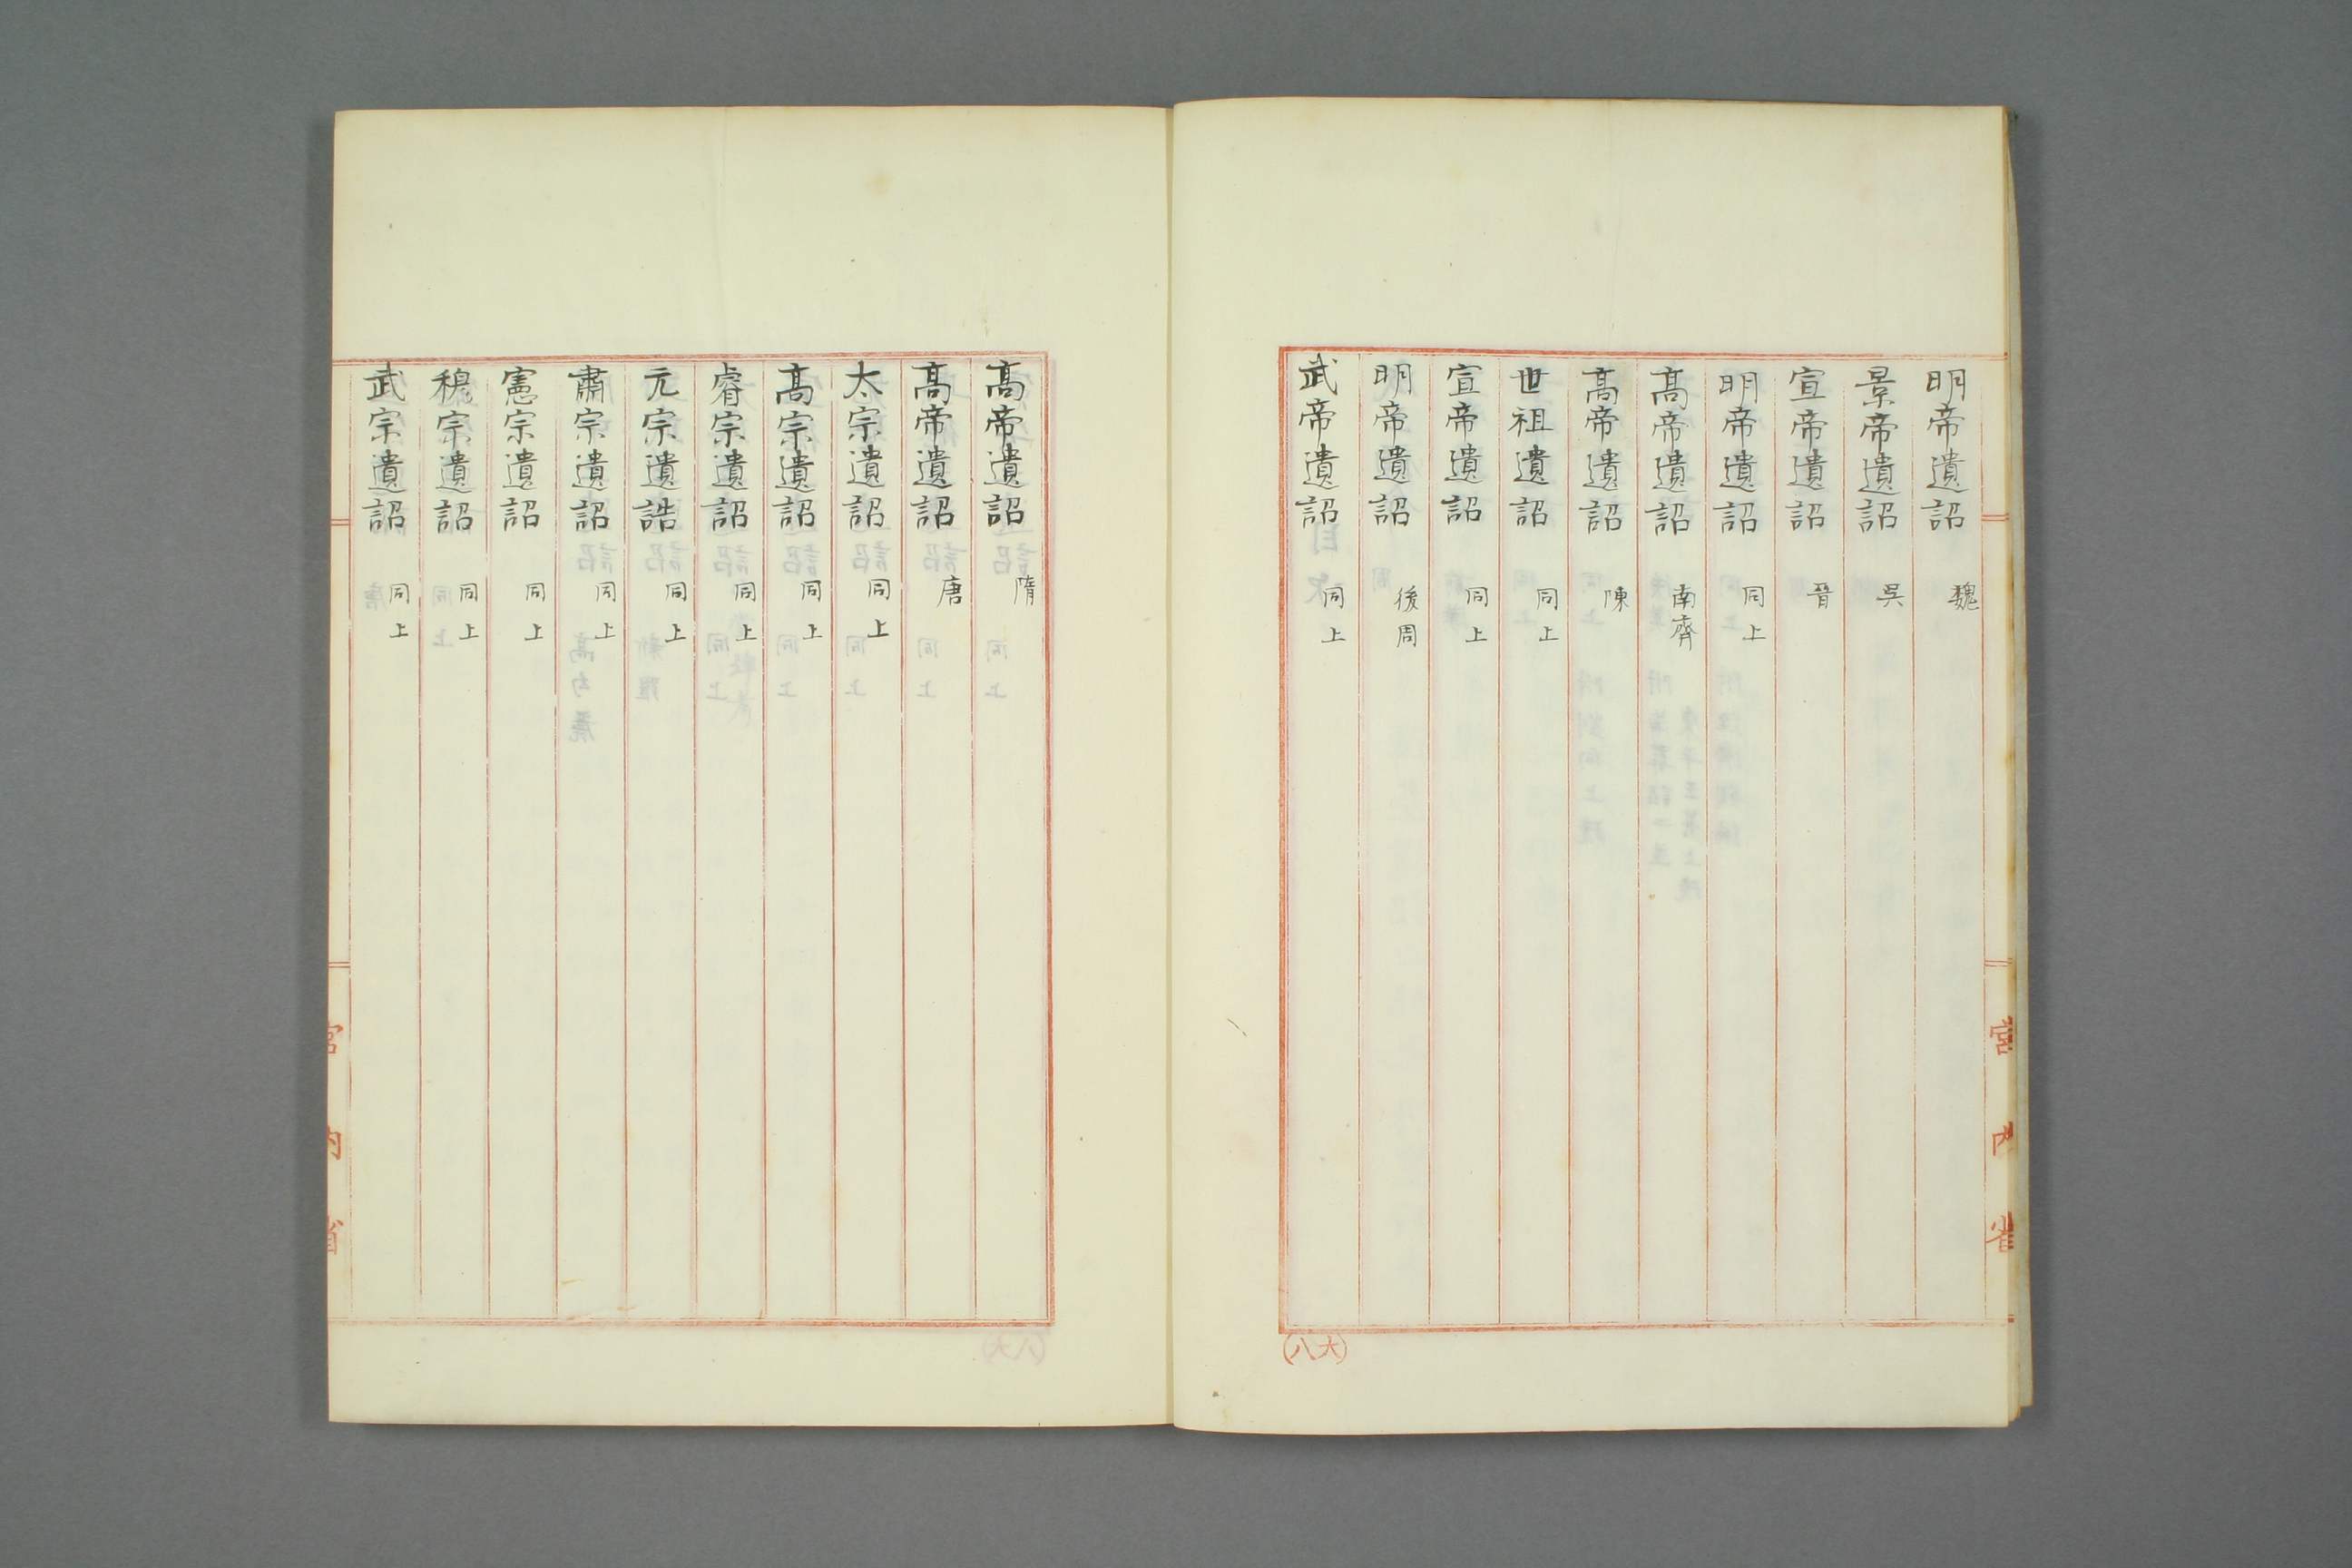 明帝遺詔 魏
景帝遺詔 吳
宣帝遺詔 晉
明帝遺詔 同上
髙帝遺詔 南齊
髙帝遺詔 陳
世祖遺詔 同上
宣帝遺詔 同上
明帝遺詔 後周
武帝遺詔 同上
宮内省
(六八)
髙帝遺詔 隋
髙帝遺詔 唐
太宗遺詔 同上
髙宗遺詔 同上
睿宗遺詔 同上
元宗遺誥 同上
肅宗遺詔 同上
憲宗遺詔 同上
穆宗遺詔 同上
武宗遺詔 同上
宮内省